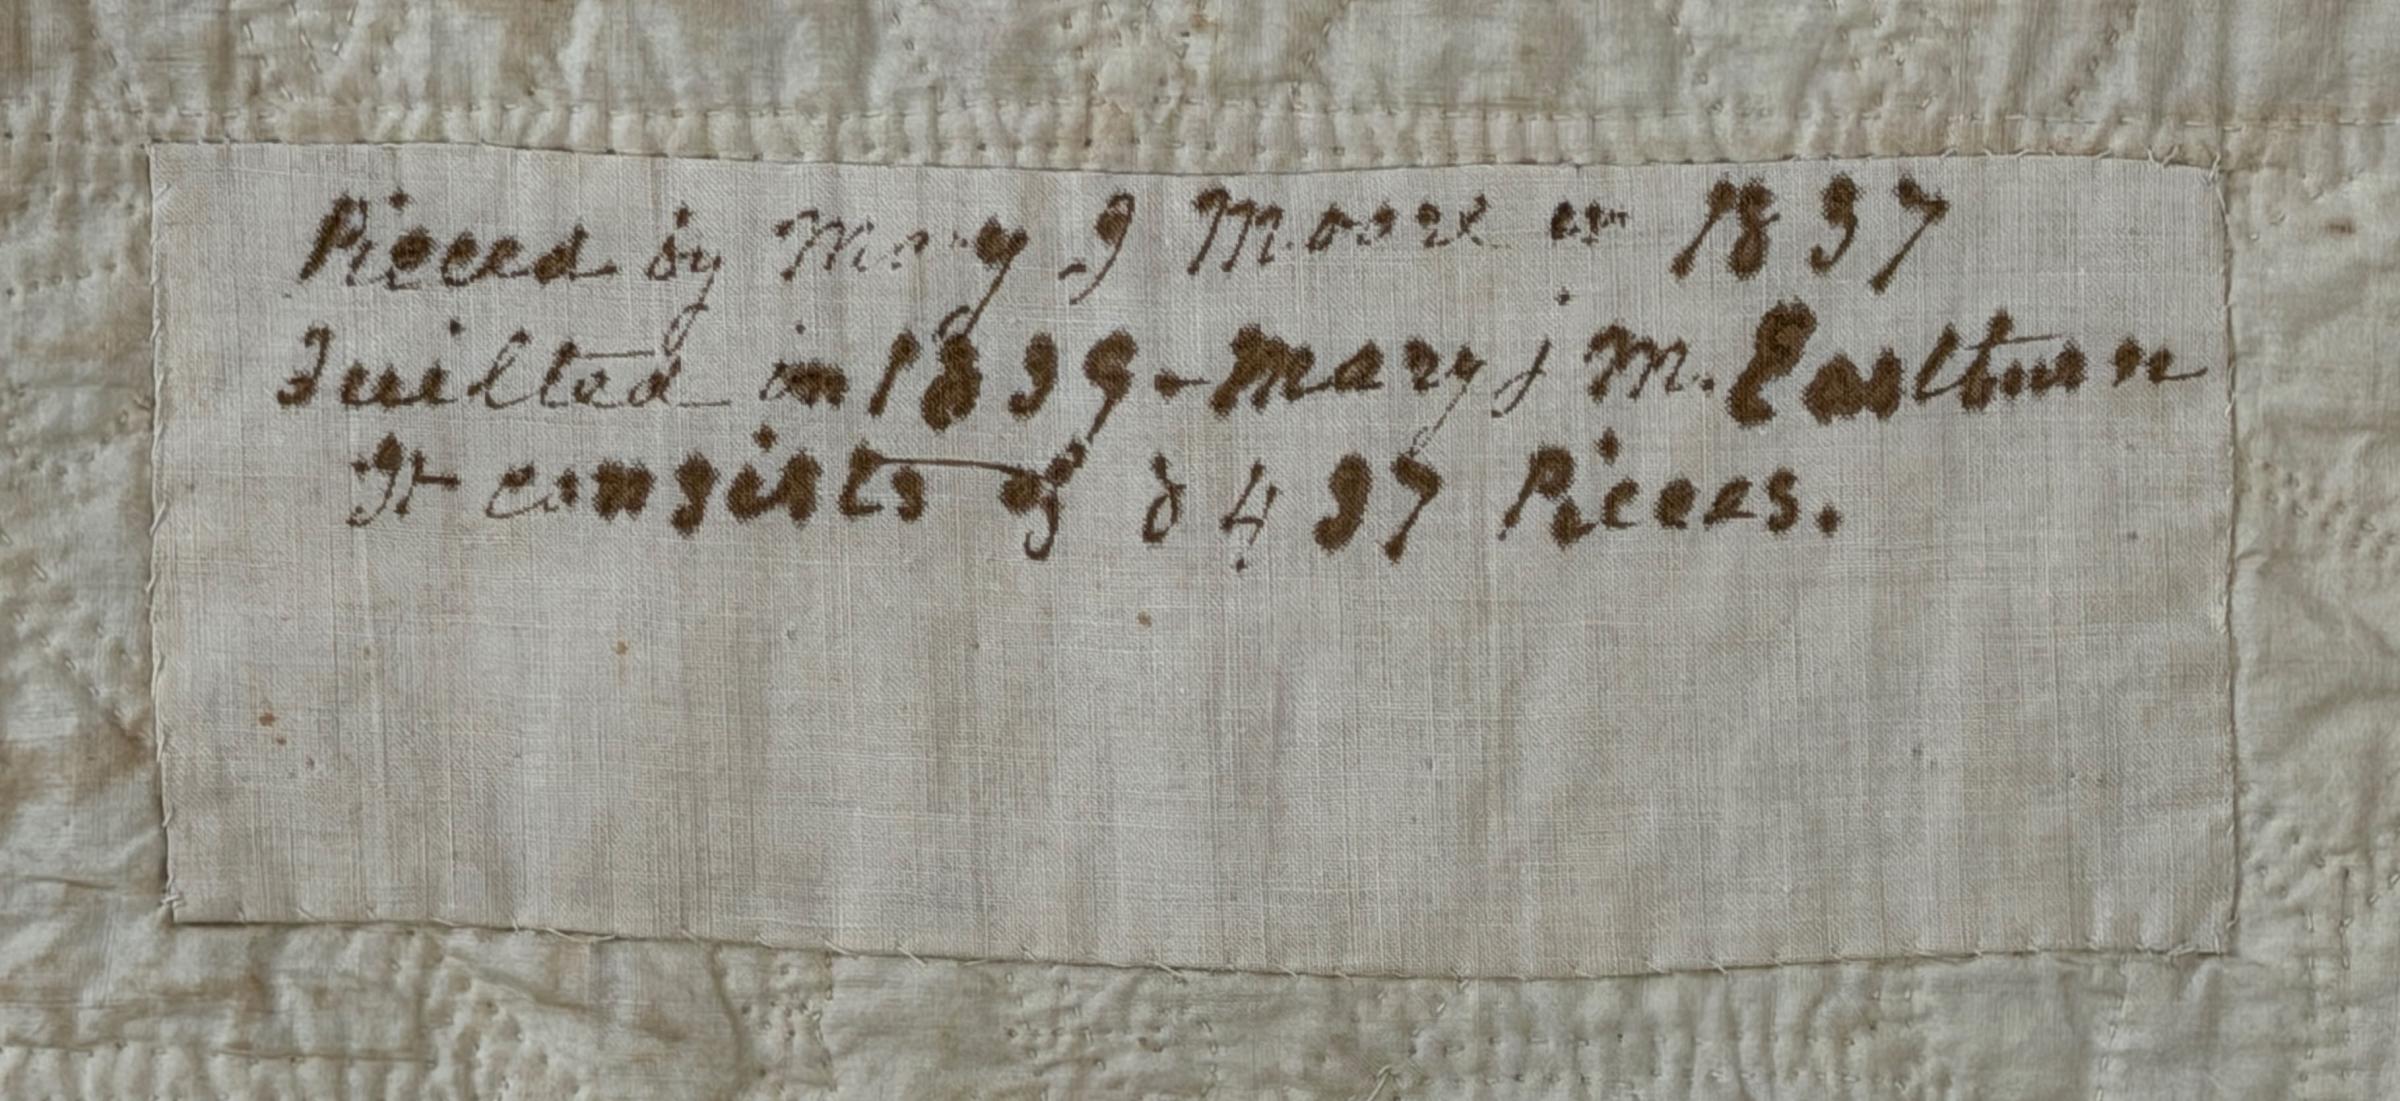 Pieced by Mary J Moore in 1837
Quilted in 1839 - Mary J M. Eastburn
It consists of 8437 Pieces.